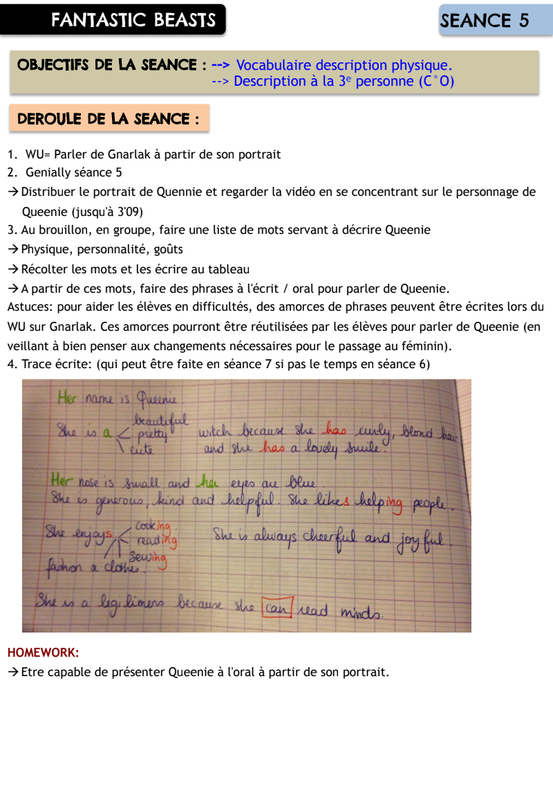 FANTASTIC BEASTS
SEANCE 5
OBJECTIFS DE LA SEANCE : --> Vocabulaire description physique.
--> Description à la 3e personne (C°O)
DEROULE DE LA SEANCE :
1. WU= Parler de Gnarlak à partir de son portrait
2. Genially séance 5
→ Distribuer le portrait de Quennie et regarder la vidéo en se concentrant sur le personnage de
Queenie (jusqu'à 3'09)
3. Au brouillon, en groupe, faire une liste de mots servant à décrire Queenie
→ Physique, personnalité, goûts
→ Récolter les mots et les écrire au tableau
→ A partir de ces mots, faire des phrases à l'écrit / oral pour parler de Queenie.
Astuces: pour aider les élèves en difficultés, des amorces de phrases peuvent être écrites lors du
WU sur Gnarlak. Ces amorces pourront être réutilisées par les élèves pour parler de Queenie (en
veillant à bien penser aux changements nécessaires pour le passage au féminin).
4. Trace écrite: (qui peut être faite en séance 7 si pas le temps en séance 6)
Her name is Queenie
beautiful
She is a pretty witch because she has curly, blond hair
cute and she has a lovely smile.
Her nose is small and her eyes are blue.
She is generous, kind and helpful. She likes helping people.
cooking
She enjoys reading She is always cheerful and joyful.
sewing
fashion & clothes.
She is a legilimens because she can read minds.
HOMEWORK:
→ Etre capable de présenter Queenie à l'oral à partir de son portrait.